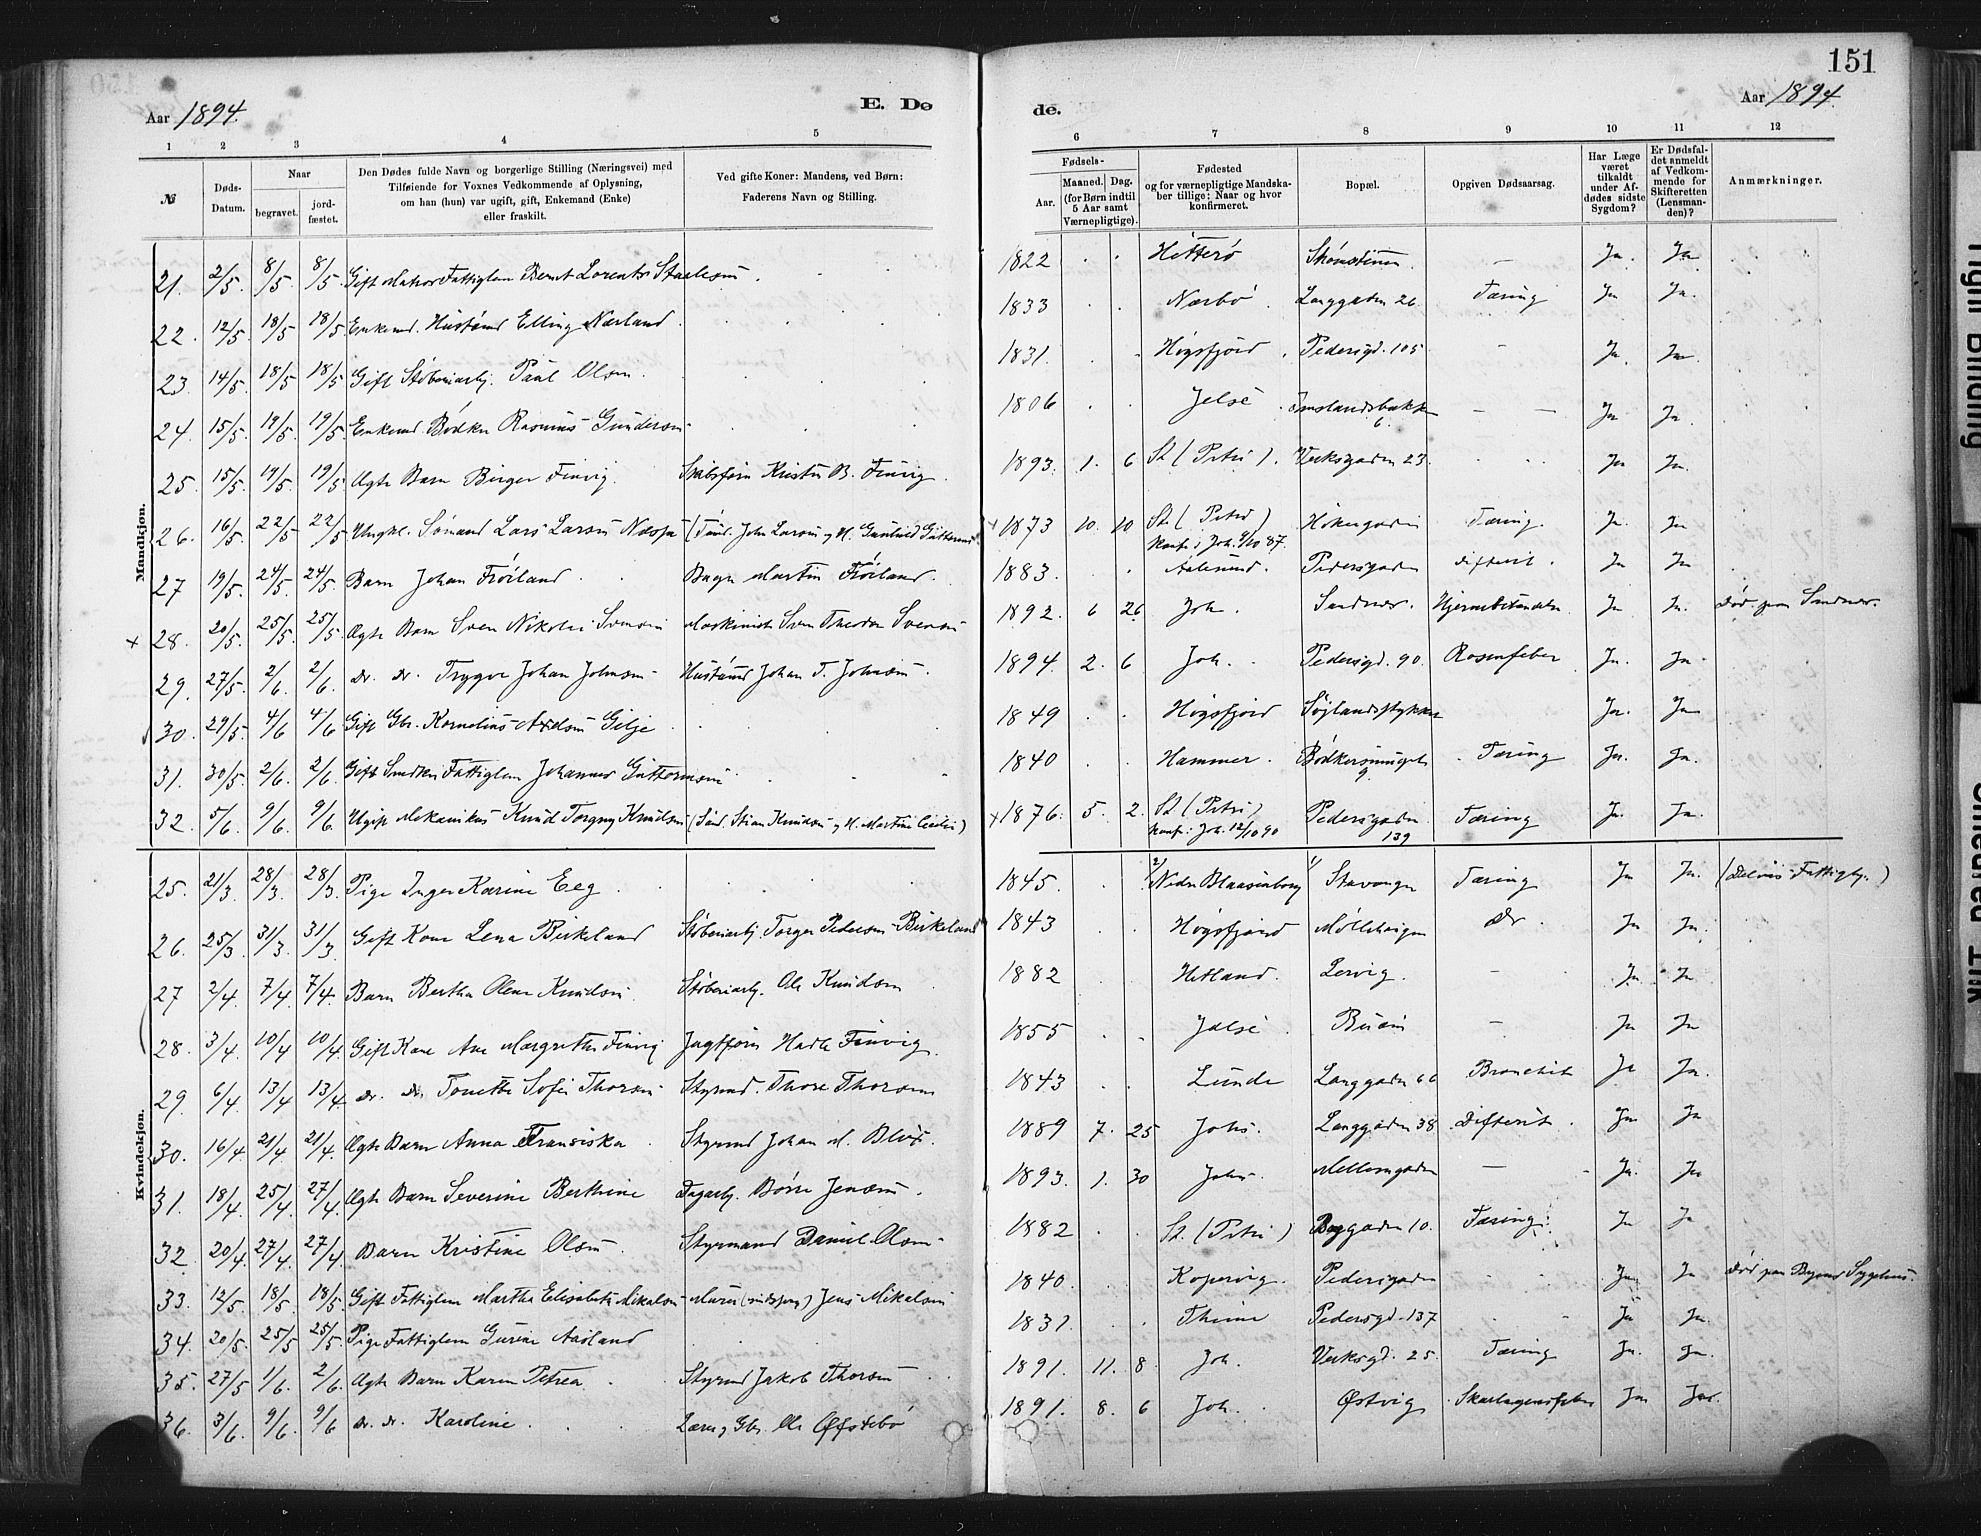 151
Aar 1894.
E. Dø
de.
Aar 1894.
1 2 3 4 5 6 7 8 9 10 11 12
№
Døds-Datum.
Naar
begravet.
jord-fæstet.
Den Dødes fulde Navn og borgerlige Stilling (Næringsvei) med
Tilføiende for Voxnes Vedkommende af Oplysning,
om han (hun) var ugift, gift, Enkemand (Enke)
eller fraskilt.
Ved gifte Koner: Mandens, ved Børn:
Faderens Navn og Stilling.
Fødsels-
Aar.
Maaned. Dag.
(for Børn indtil
5 Aar samt
Værnepligtige).
Fødested
og for værnepligtige Mandska-
ber tillige: Naar og hvor
konfirmeret.
Bopæl.
Opgiven Dødsaarsag.
Har Læge
været
tilkaldt
under Af-
dødes sidste
Sygdom?
Er Dødsfal-
det anmeldt
af Vedkom-
mende for
Skifteretten
(Lensman-
den)?
Anmærkninger.
Mandkjøn.
21. 2/5. 8/5. 8/5. Gift Matros Fattiglem Bernt Lorents Staalesen 1822 Hitterö Ja. Ja
22. 12/5. 18/5 18/5 Enkemd. Hustømd Elling Nærland 1833 Nærbö Langgaden 26 Tæring Ja Ja.
23. 14/5 18/5 18/5 Gift Støberiarb. Paul Olsen 1831. Högsfjord Pedersgd. 105 Ja. Ja
24. 15/5. 19/5. 19/5. Enkemd Bødker Rasmus Gundersen 1806 Jelse 6. Ja Ja.
25. 15/5. 19/5. 19/5. Ægte Barn Birger Finvig. Skibsfører B. Finvig 1893. 1. 6 St. (Petri). Verksgaden 23. Ja Ja.
26. 16/5. 22/5. 22/5 Ungkl. Sømand Lars Larsen 1873 10. 10 St. (Petri) Tæring. Ja Ja
konf. i Joh. 87.
27 19/5. 24/5. 24/5. Barn Johan Fröiland Martin Fröiland. 1883. Aalesund. Pedersgaden Difterit. Ja Ja
+ 28. 20/5. 25/5. 25/5. Ægte Barn Sven Nikolai Svensen Maskinist Sven Theodor Svensen 1892. 6 26 Joh. Sandnes. Ja Ja. Död paa Sandnes.
29. 27/5. 2/6. 2/6. do. do. Trygve Johan Johnsen Hustømd Johan T. Johnsen. 1894. 2. 6 Joh. Pedersgd. 90. Rosenfeber Ja. Ja
30. 29/5. 4/6 4/6 Gift Gbr. Kornelius Axelsen Gilje 1849 Högsfjord Ja. Ja
31. 30/5. 2/6. 2/6. Gift Fattiglem Johannes Guttormsen 1840 Hammer. 9. Tæring Ja. Ja.
32. 5/6. 9/6. 9/6. Ugift Mekanikus Knud Torgny Knudsen +1876. 5. 2. St. (Petri) Pedersgaden Tæring Ja. Ja.
konf. i Joh. 12/10 90 139
Kvindekjøn.
25. 21/3. 28/3. 28/3. Pige Inger Karine Eeg 1845. 2/ Nedre Blaasenborg 1/ Stavanger Tæring Ja Ja.
26. 25/3. 31/3. 31/3. Gift Kone Lena Birkeland Støberiarb. Torger Pedersen Birkeland 1843 Högsfjord do. Ja Ja.
27 2/4. 7/4 7/4. Barn Bertha Olene Knudsen Støberiarb. Ole Knudsen 1882 Hetland. Lervig. Ja Ja
28. 3/4. 10/4 10/4. Gift Kone Ane Margrethe Finvig Jagtfører Finvig. 1855 Jelse Buøen Ja Ja
29 6/4. 13/4 13/4. do. do. Tonette Sofie Thorsen Styrmd. Thore Thorsen 1843 Lunde Langgaden 66 Bronchit Ja Ja.
30. 16/4 21/4. 21/4. Ægte Barn Anna Fransiska Styrmd Johan M. 1889 7. 25 Johs. Langgaden 38 Difterit. Ja Ja
31. 18/4. 25/4. 27/4. Ægte Barn Severine Berthine Dagarb. Børre Jensen. 1893. 1. 30 Johs. Mellemgaden Ja. Ja
32. 20/4. 27/4. 27/4. Barn Kristine Olsen Styrmand Daniel Olsen 1882 St. (Petri) Baggaden 10. Tæring. Ja Ja
33. 12/5. 18/5. 18/5. Gift Fattiglem Martha Elisabeth Mikalsen Murer Jens Mikalsen 1840. Kopervig. Pedersgaden Ja Ja Död paa Byens Sygehus.
34. 20/5. 25/5 25/5. Pige Fattiglem Gurine Aasland 1831 Thime Pedersgd. 137 Ja Ja.
35. 27/5 1/6. 2/6. Ægte Barn Karen Petrea Styrmd Jakob Thorsen 1891. 11. 8 Joh. Verksgd. 25. Tæring Ja. Ja.
36. 3/6. 9/6. 9/6 do. do. Karoline. Lærer og Gbr. Ole Øfstebö 1891. 8. 6 Joh. Østvig Skarlagensfeber Ja Ja.